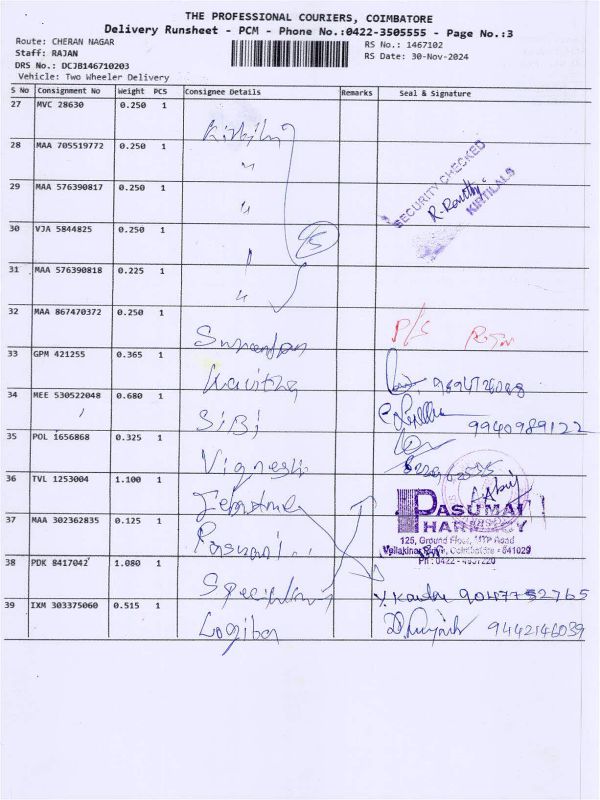 THE PROFESSIONAL COURIERS, COIMBATORE
Delivery Runsheet - PCM - Phone No.:0422-3505555 - Page No.:3
Route: CHERAN NAGAR
RS No.: 1467102
Staff: RAJAN
RS Date: 30-Nov-2024
DRS No.: DCJB146710203
Vehicle: Two Wheeler Delivery
S No Consignment No Weight PCS Consignee Details Remarks Seal & Signature
27 MVC 28630 0.250 1
28 MAA 705519772 0.250 1 "
SECURITY CHECKED
KIRTILALS
29 MAA 576390817 0.250 1 "
30 VJA 5844825 0.250 1 "
31 MAA 576390818 0.225 1 "
32 MAA 867470372 0.250 1
P/S
33 GPM 421255 0.365 1 Kavitha
34 MEE 530522048 0.680 1 SiBi 9940989122
35 POL 1656868 0.325 1 Vignesh
36 TVL 1253004 1.100 1
PASUMAI
PHARMACY
37 MAA 302362835 0.125 1 Pasumai
125, Ground Floor, MTP Road
Coimbatore - 641029
Ph : 0422 - 4957220
38 PDK 8417042 1.080 1
39 IXM 303375060 0.515 1 9442146039